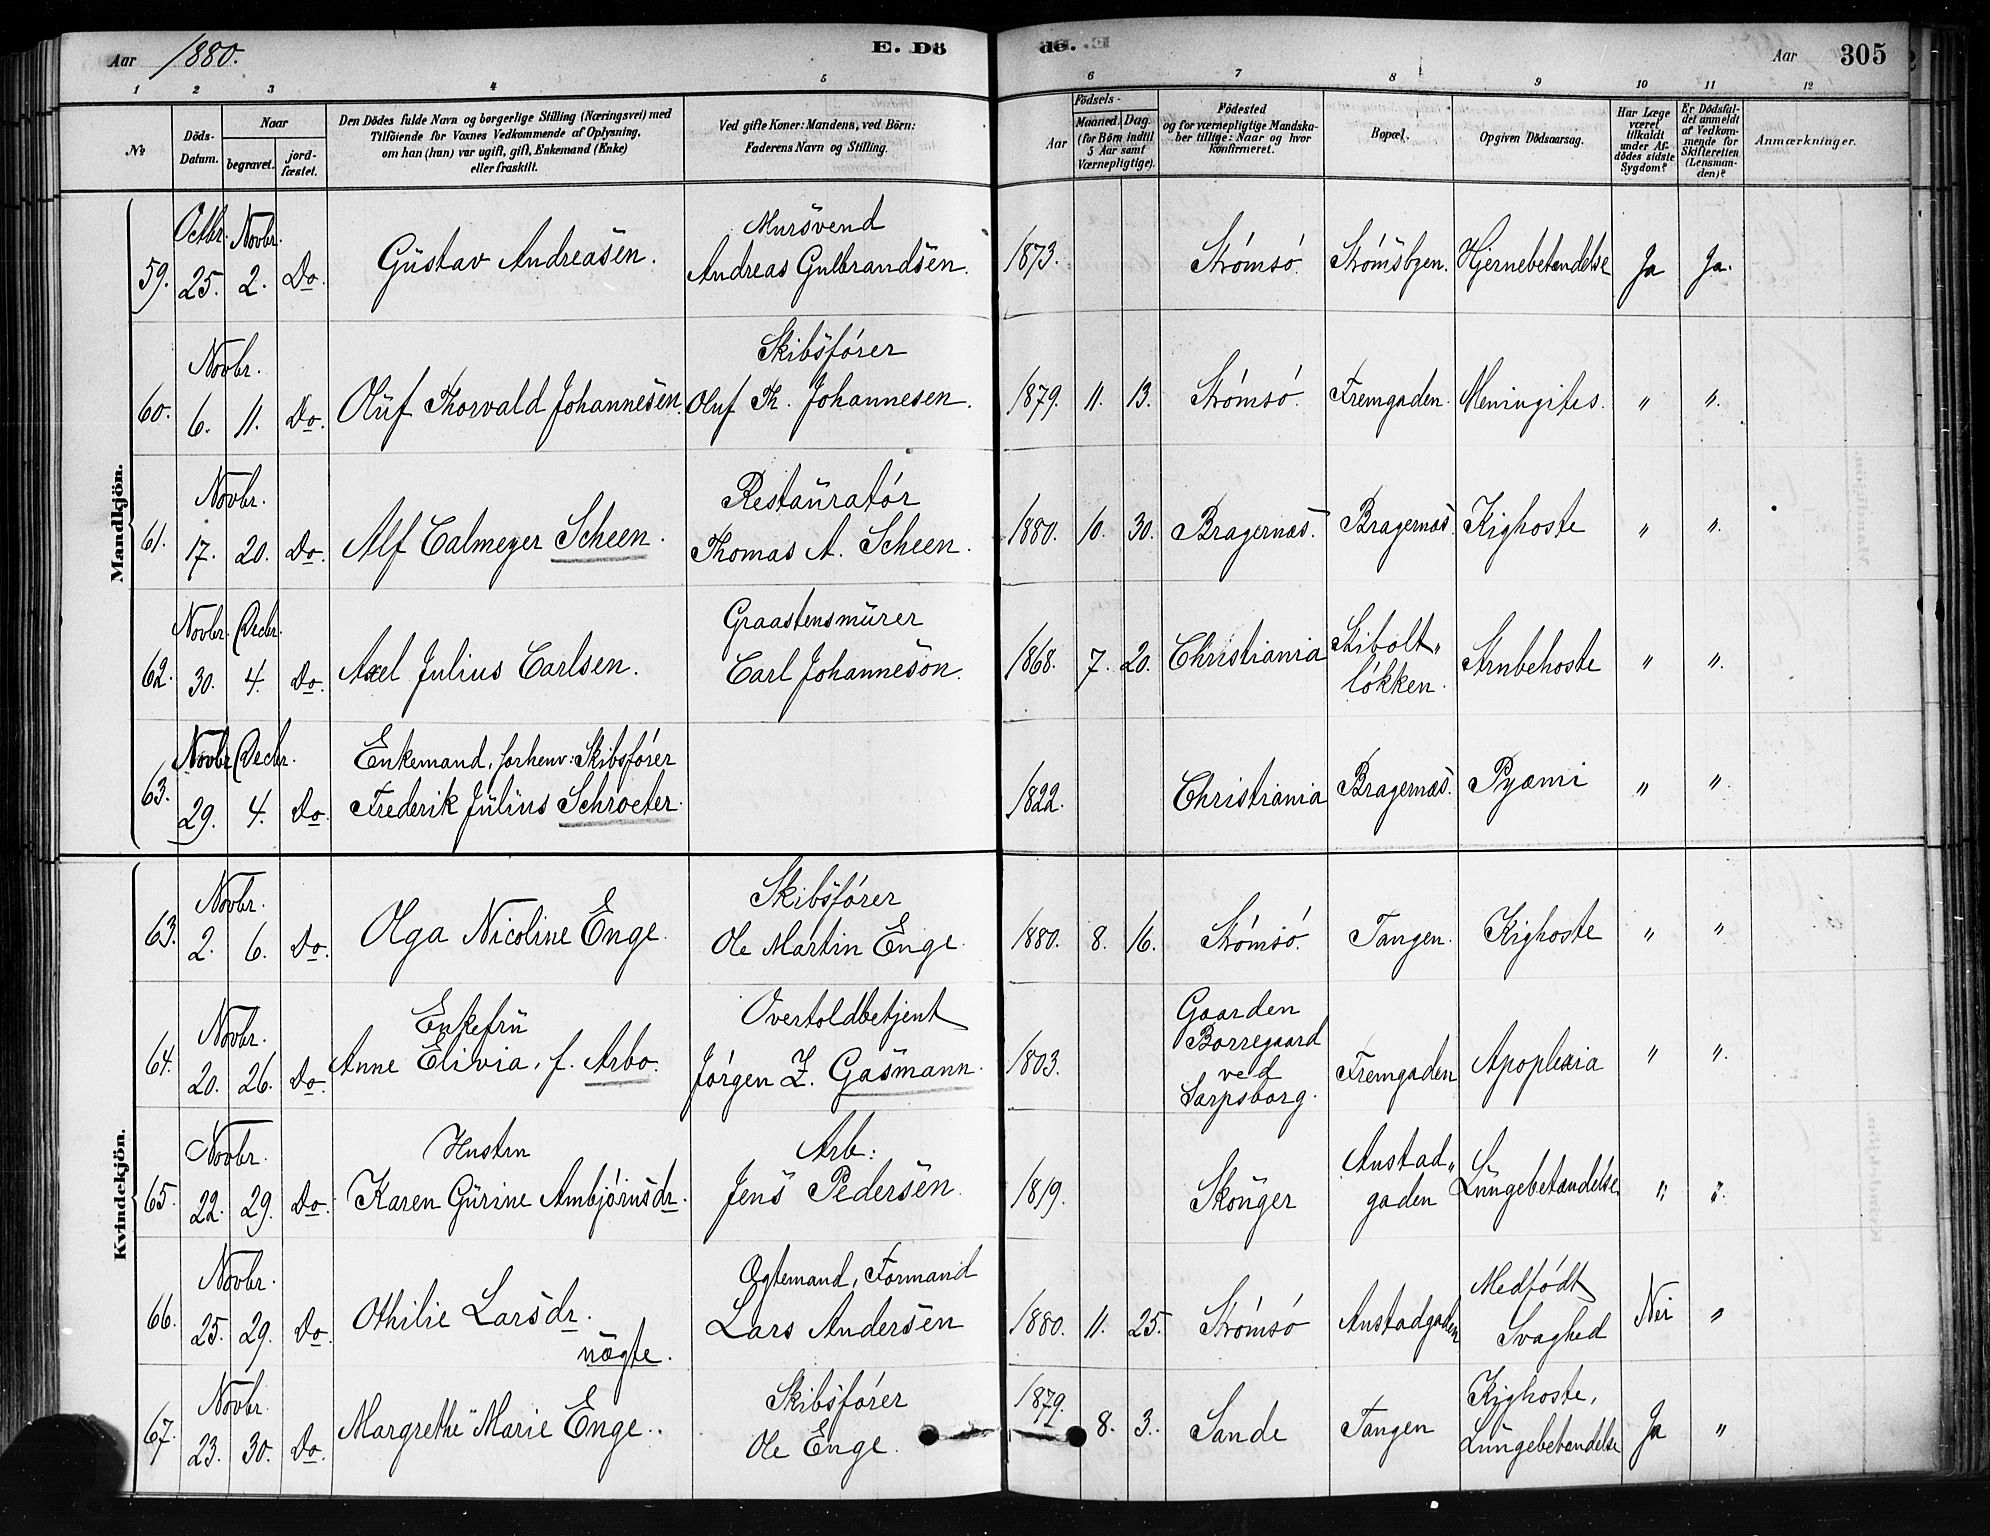 Aar 1880. E. Dö de. Aar 305
1 2 3 4 5 6 7 8 9 10 11 12
№
Döds-Datum.
Naar
begravet.
jord-fæstet.
Den Dödes fulde Navn og borgerlige Stilling (Næringsvei) med
Tilföiende for Voxnes Vedkommende af Oplysning,
om han (hun) var ugift, gift, Enkemand (Enke)
eller fraskilt.
Ved gifte Koner: Mandens, ved Börn:
Faderens Navn og Stilling.
Födsels-
Aar
Maaned. Dag.
(for Börn indtil
5 Aar samt
Værnepligtige).
Födested
og for værnepligtige Mandska-
ber tillige: Naar og hvor
konfirmeret.
Bopæl.
Opgiven Dödsaarsag.
Har Læge
været
tilkaldt
under Af-
dödes sidste
Sygdom?
Er Dödsfal-
det anmeldt
af Vedkom-
mende for
Skifteretten
(Lensman-
den)?
Anmærkninger.
Mandkjön.
Octbr. Novbr. Mursvend
59. 25. 2. Do. Gustav Andreasen. Andreas Gulbrandsen. 1873. Strömsö. Strömsbyen. Hjernebetendelse Ja Ja.
Novbr. Skibsförer
60. 6. 11. Do. Oluf Thorvald Johannesen. Oluf Th. Johannesen. 1879. 11. 13. Strömsö. Fremgaden. Meningites. " ".
Novbr. Restauratör
61. 17. 20. Do. Alf Calmeyer Scheen. Thomas A. Scheen. 1880. 10. 30. Bragernæs. Bragernæs. Kighoste " ".
Novbr. Decbr. Graastensmurer
62. 30. 4. Do. Axel Julius Carlsen. Carl Johanneson. 1868. 7. 20. Christiania Skibolt„ Strubehoste " ".
løkken.
Novbr. Decbr. Enkemand, forhenv: Skibsförer
63. 29. 4. Do. Frederik Julius Schroeter. 1822. Christiania Bragernæs. Pyæmi " ".
Kvindekjön.
Novbr. Skibsförer
63. 2. 6. Do. Olga Nicoline Enge. Ole Martin Enge. 1880. 8. 16. Strömsö. Tangen. Kighoste " "
Novbr. Enkefru Overtoldbetjent Gaarden
Borregaard
64. 20. 26. Do. Anne Elivia, f. Arbo. Jörgen Z. Gasmann. 1803. ved Fremgaden Apoplexia " ".
Sarpsborg.
Novbr. Hustru Arb: Austad„
65. 22. 29. Do. Karen Gurine Ambjörnsdr. Jens Pedersen. 1819. Skouger gaden Lungebetændelse " ".
Novbr. Ægtemand, Formand Medfödt
66. 25. 29. Do. Othilie Larsdr. Lars Andersen 1880. 11. 25. Strömsö Austadgaden Svaghed Nei "
nægte.
Novbr. Skibsförer Kighoste,
67. 23. 30. Do. Margrethe Marie Enge. Ole Enge. 1879. 8. 3. Sande Tangen Lungebetendelse Ja "